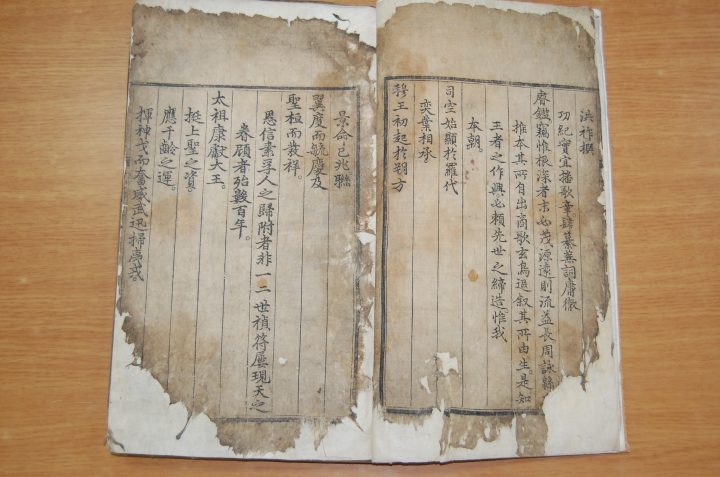 洪祚撰
功紀實宜播歌章肆纂蕪詞庸徹
睿鑑竊惟根深者末必茂源遠則流益長周詠緜
推本其所自出商歌玄鳥追叙其所由生是知
王者之作興必賴先世之締造惟我
本朝。
司空始顯於羅代
奕葉相承。
穆王初起於朔方
景命已兆聯
翼度而毓慶及
聖桓而發祥。
恩信素孚人之歸附者非一二世禎符屢現天之
眷顧者殆數百年。
太祖康獻大王。
挺上聖之資。
應千齡之運。
揮神戈而奮威武迅掃夷戎。